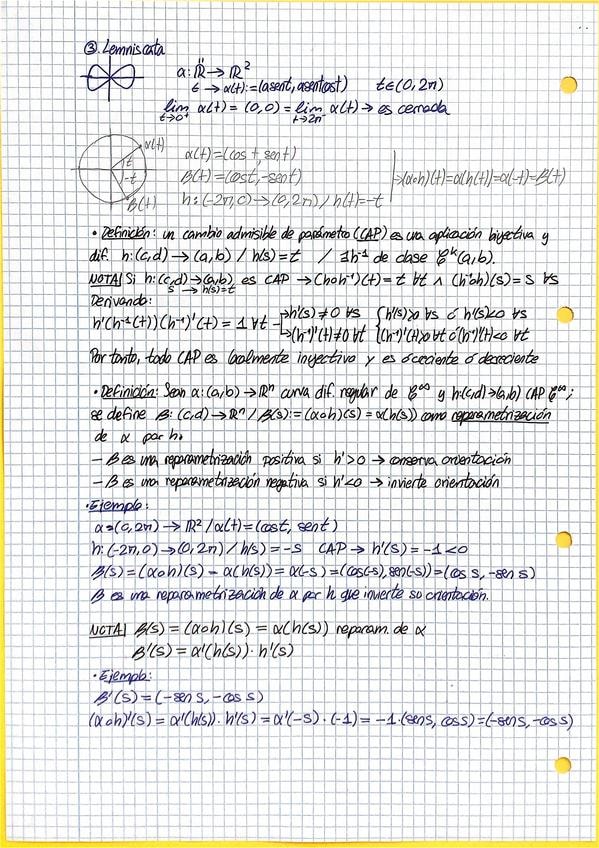 ③. Lemniscata
α: ℝ → ℝ²
t → α(t):=(a sent, a sent cost) t∈(0,2π)
lim t→0⁺ α(t) = (0,0) = lim t→2π⁻ α(t) → es cerrada
α(t)
t
-t
β(t)
α(t)=(cos t, sent)
β(t)=(cost,-sent)
h:(-2π,0)→(0,2π) / h(t)=-t
→(α∘h)(t)=α(h(t))=α(-t)=β(t)
• Definición: un cambio admisible de parámetro (CAP) es una aplicación biyectiva y
dif. h:(c,d)→(a,b) / h(s)=t / ∃h⁻¹ de clase 𝒞ᵏ(a,b).
NOTA| Si h:(c,d)→(a,b) es CAP → (h∘h⁻¹)(t)=t ∀t ∧ (h⁻¹∘h)(s)=s ∀s
s → h(s)=t
Derivando:
h'(h⁻¹(t))(h⁻¹)'(t) = 1 ∀t → h'(s)≠0 ∀s {h'(s)>0 ∀s ó h'(s)<0 ∀s
→(h⁻¹)'(t)≠0 ∀t {(h⁻¹)'(t)>0 ∀t ó (h⁻¹)'(t)<0 ∀t
Por tanto, todo CAP es localmente inyectivo y es ó creciente ó decreciente
• Definición: Sean α:(a,b)→ℝⁿ curva dif. regular de 𝒞^∞ y h:(c,d)→(a,b) CAP 𝒞^∞;
se define β:(c,d)→ℝⁿ / β(s):=(α∘h)(s) = α(h(s)) como reparametrización
de α por h.
– β es una reparametrización positiva si h'>0 → conserva orientación
– β es una reparametrización negativa si h'<0 → invierte orientación
• Ejemplo:
α=(0,2π)→ℝ² / α(t)=(cost, sent)
h:(-2π,0)→(0,2π) / h(s)=-s CAP → h'(s)=-1<0
β(s)=(α∘h)(s) = α(h(s))=α(-s)=(cos(-s),sen(-s))=(cos s,-sen s)
β es una reparametrización de α por h que invierte su orientación.
NOTA| β(s) = (α∘h)(s) = α(h(s)) reparam. de α
β'(s) = α'(h(s))·h'(s)
• Ejemplo:
β'(s)=(-sen s, -cos s)
(α∘h)'(s) = α'(h(s))·h'(s) = α'(-s)·(-1) = -1·(sen s, cos s)=(-sen s, -cos s)